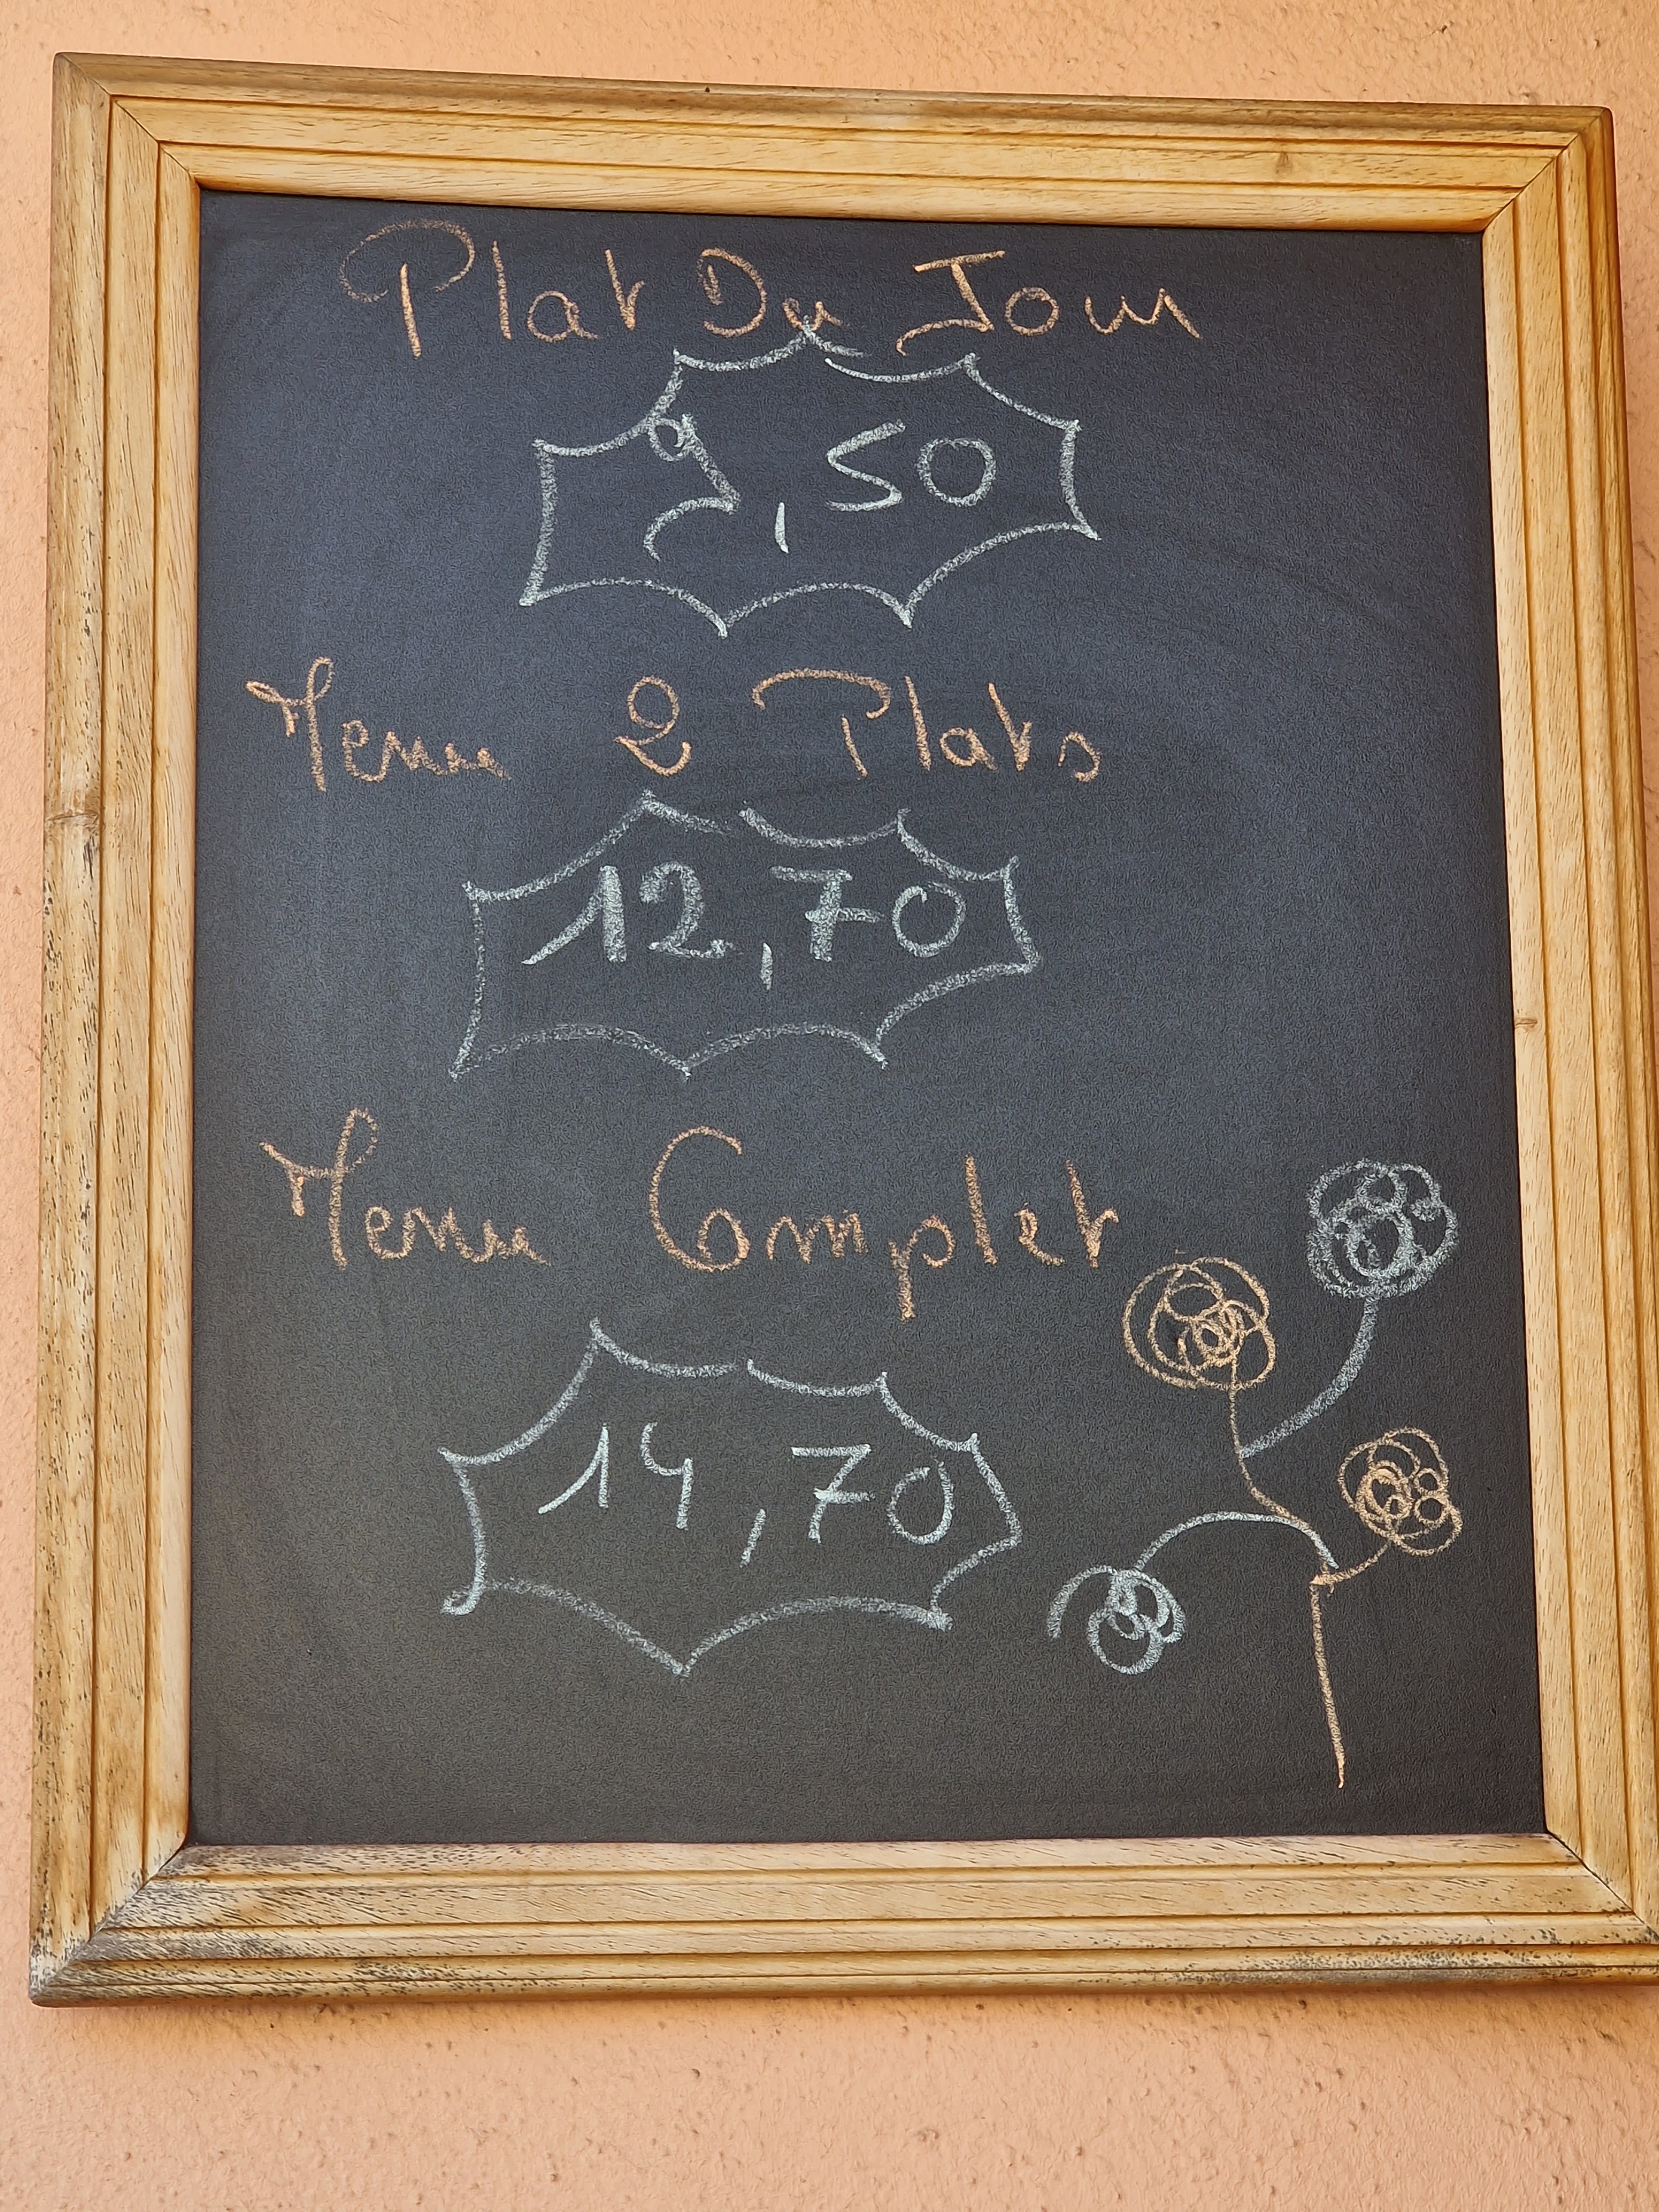 Plat Du Jour
9,50
Menu 2 Plats
12,70
Menu Complet
14,70